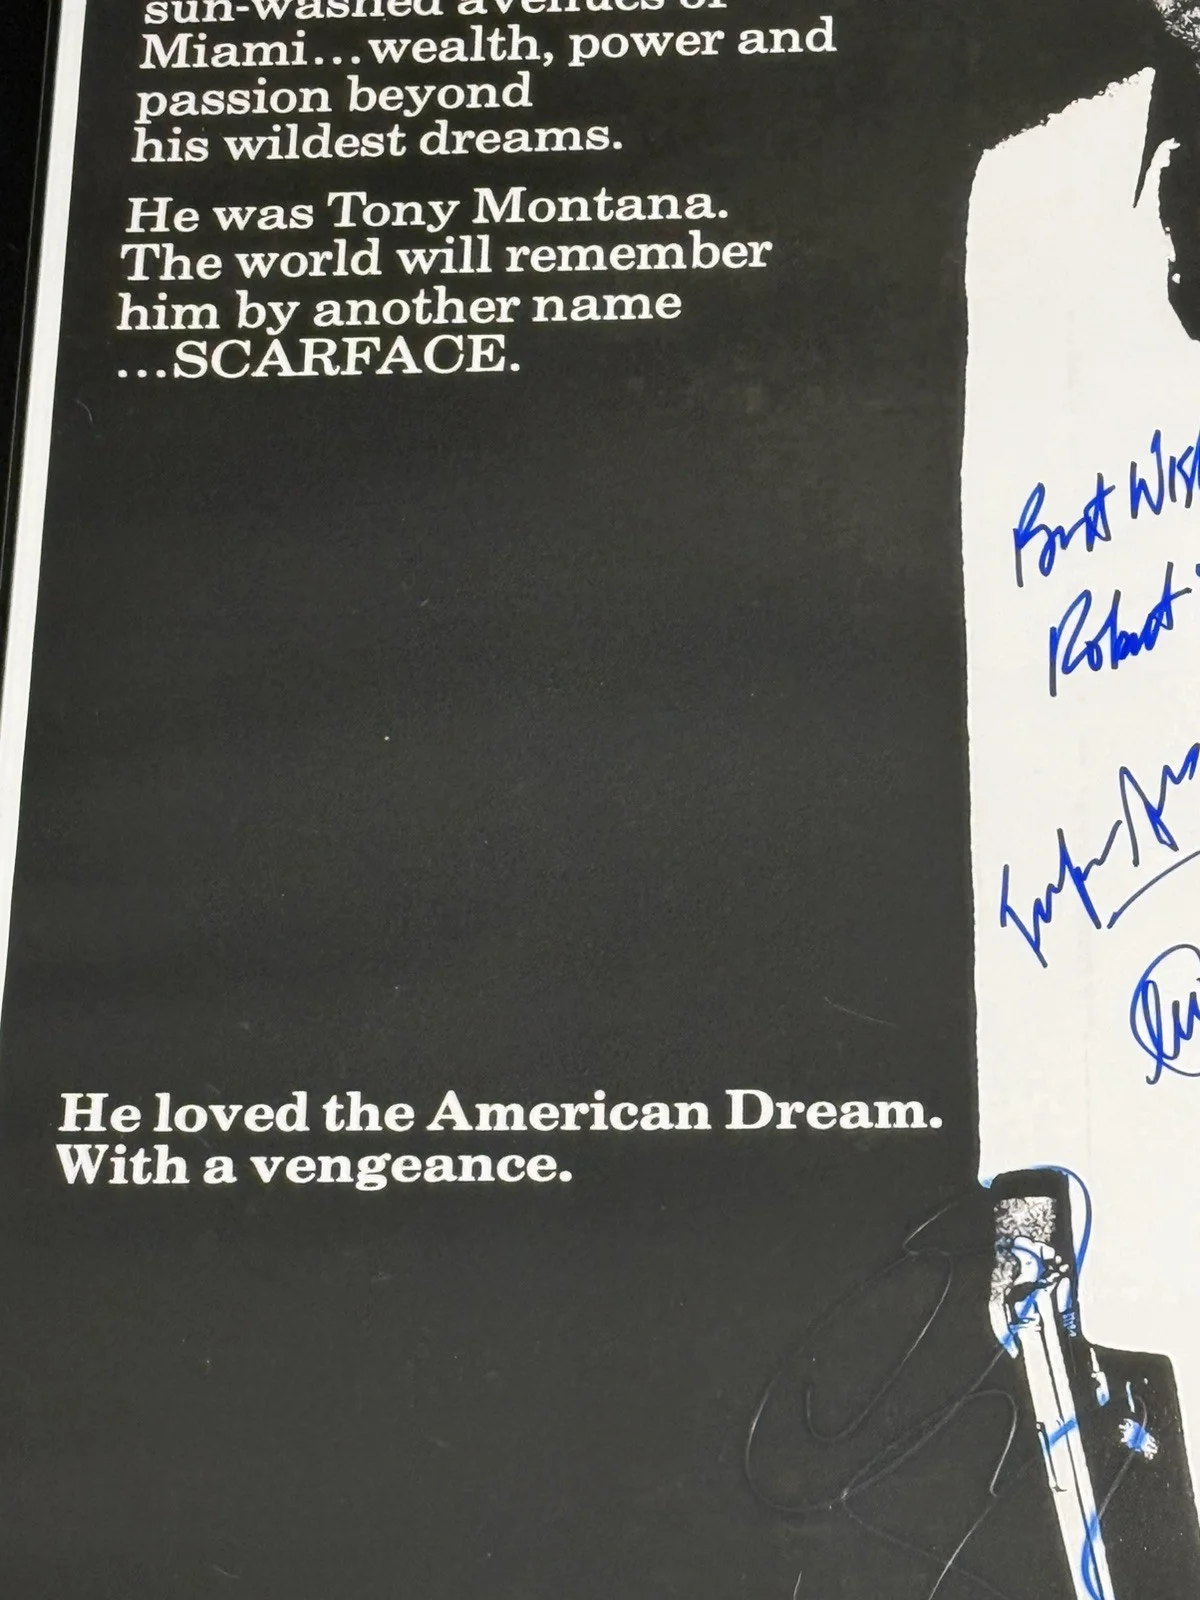 sun-washed avenues of
Miami...wealth, power and
passion beyond
his wildest dreams.
He was Tony Montana.
The world will remember
him by another name
...SCARFACE.
Best Wis
Robert
He loved the American Dream.
With a vengeance.